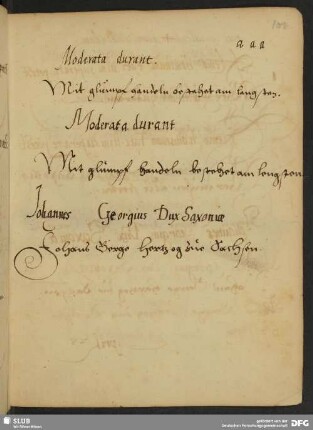 100
a a a
Moderata durant.
Mit glümpf handeln bestehet am lengsten.
Moderata durant
Mit glümpf handeln bestehet am lengsten
Johannes Georgius Dux Saxoniæ
Johans Gerge Hertzog zue Sachsen.
SLUB
Wir führen Wissen.
gefördert von der
Deutschen Forschungsgemeinschaft
DFG